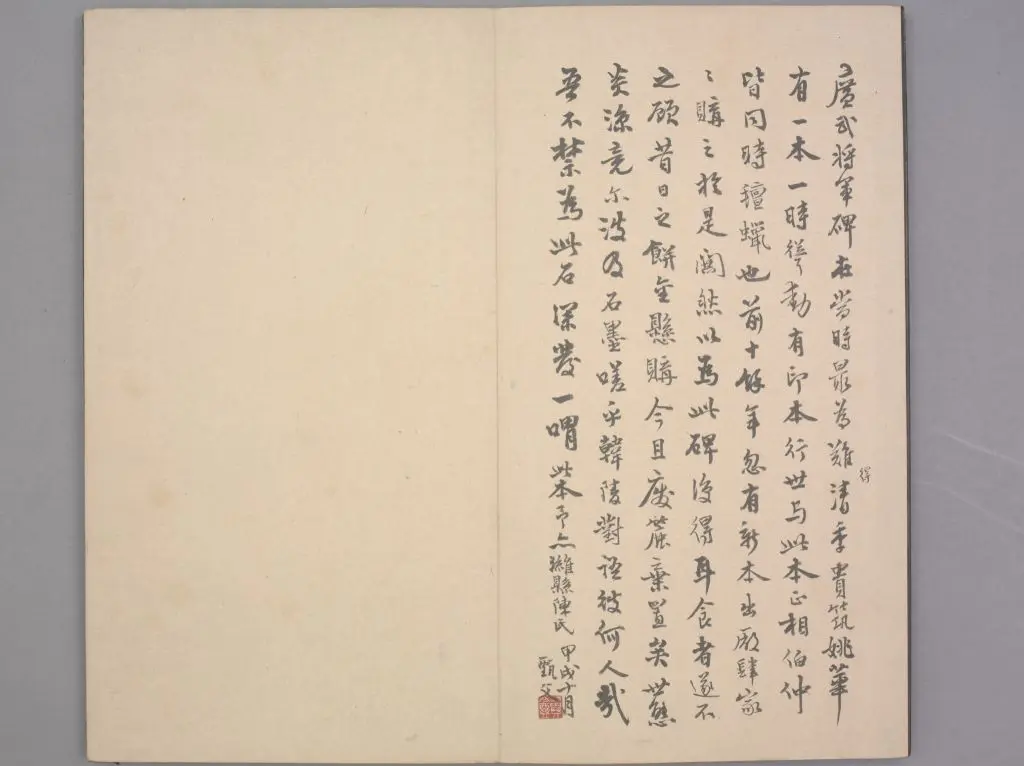 廣武将軍碑在当時最為難得清季貴筑姚華
有一本一時聳動有印本行世与此本正相伯仲
皆同時氊蠟也前十餘年忽有新本出厰肆家
〻購之於是鬨然以為此碑復得耳食者遂不
之顾昔日之餅金懸購今且廢簏棄置矣世態
炎涼竟尔波及石墨嗟乎韓陵對語彼何人哉
吾不禁為此石深發一喟此本予亦濰縣陳氏
甲戌十月
甄父